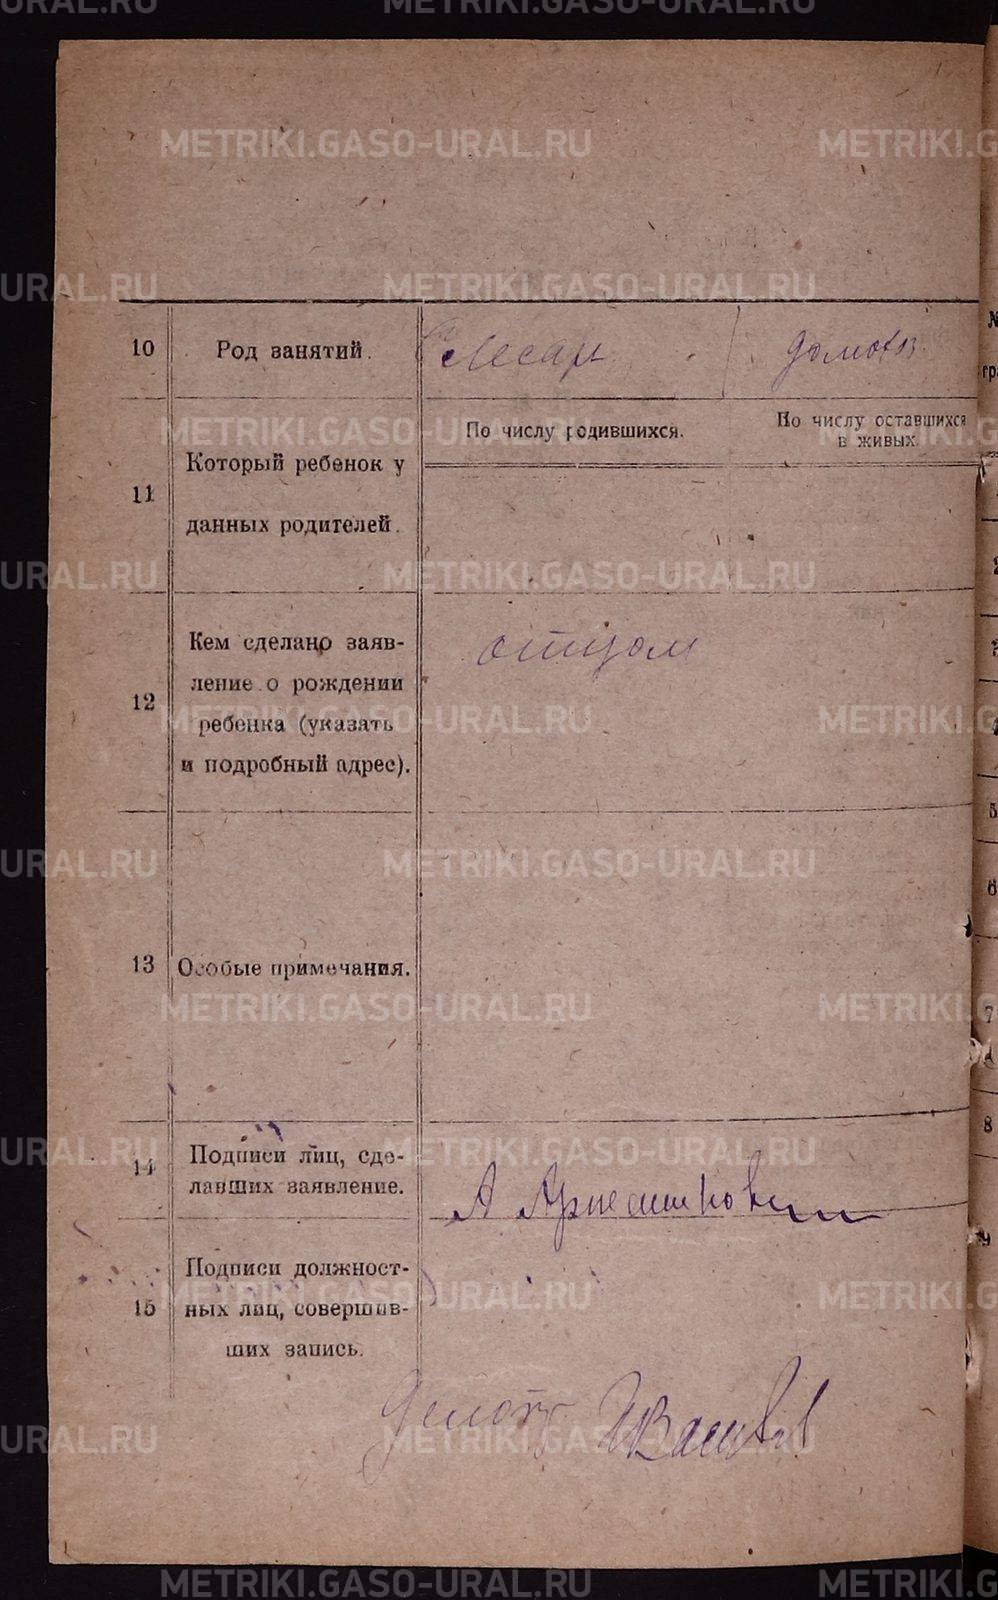 METRIKI.GASO-URAL.RU
10 Род занятий. Слесар домохоз.
11 Который ребенок у
данных родителей.
По числу родившихся.
По числу оставшихся
в живых.
12 Кем сделано заяв-
ление о рождении
ребенка (указать
и подробный адрес).
отцом
13 Особые примечания.
14 Подписи лиц, сде-
лавших заявление.
А
15 Подписи должност-
ных лиц, совершив-
ших запись.